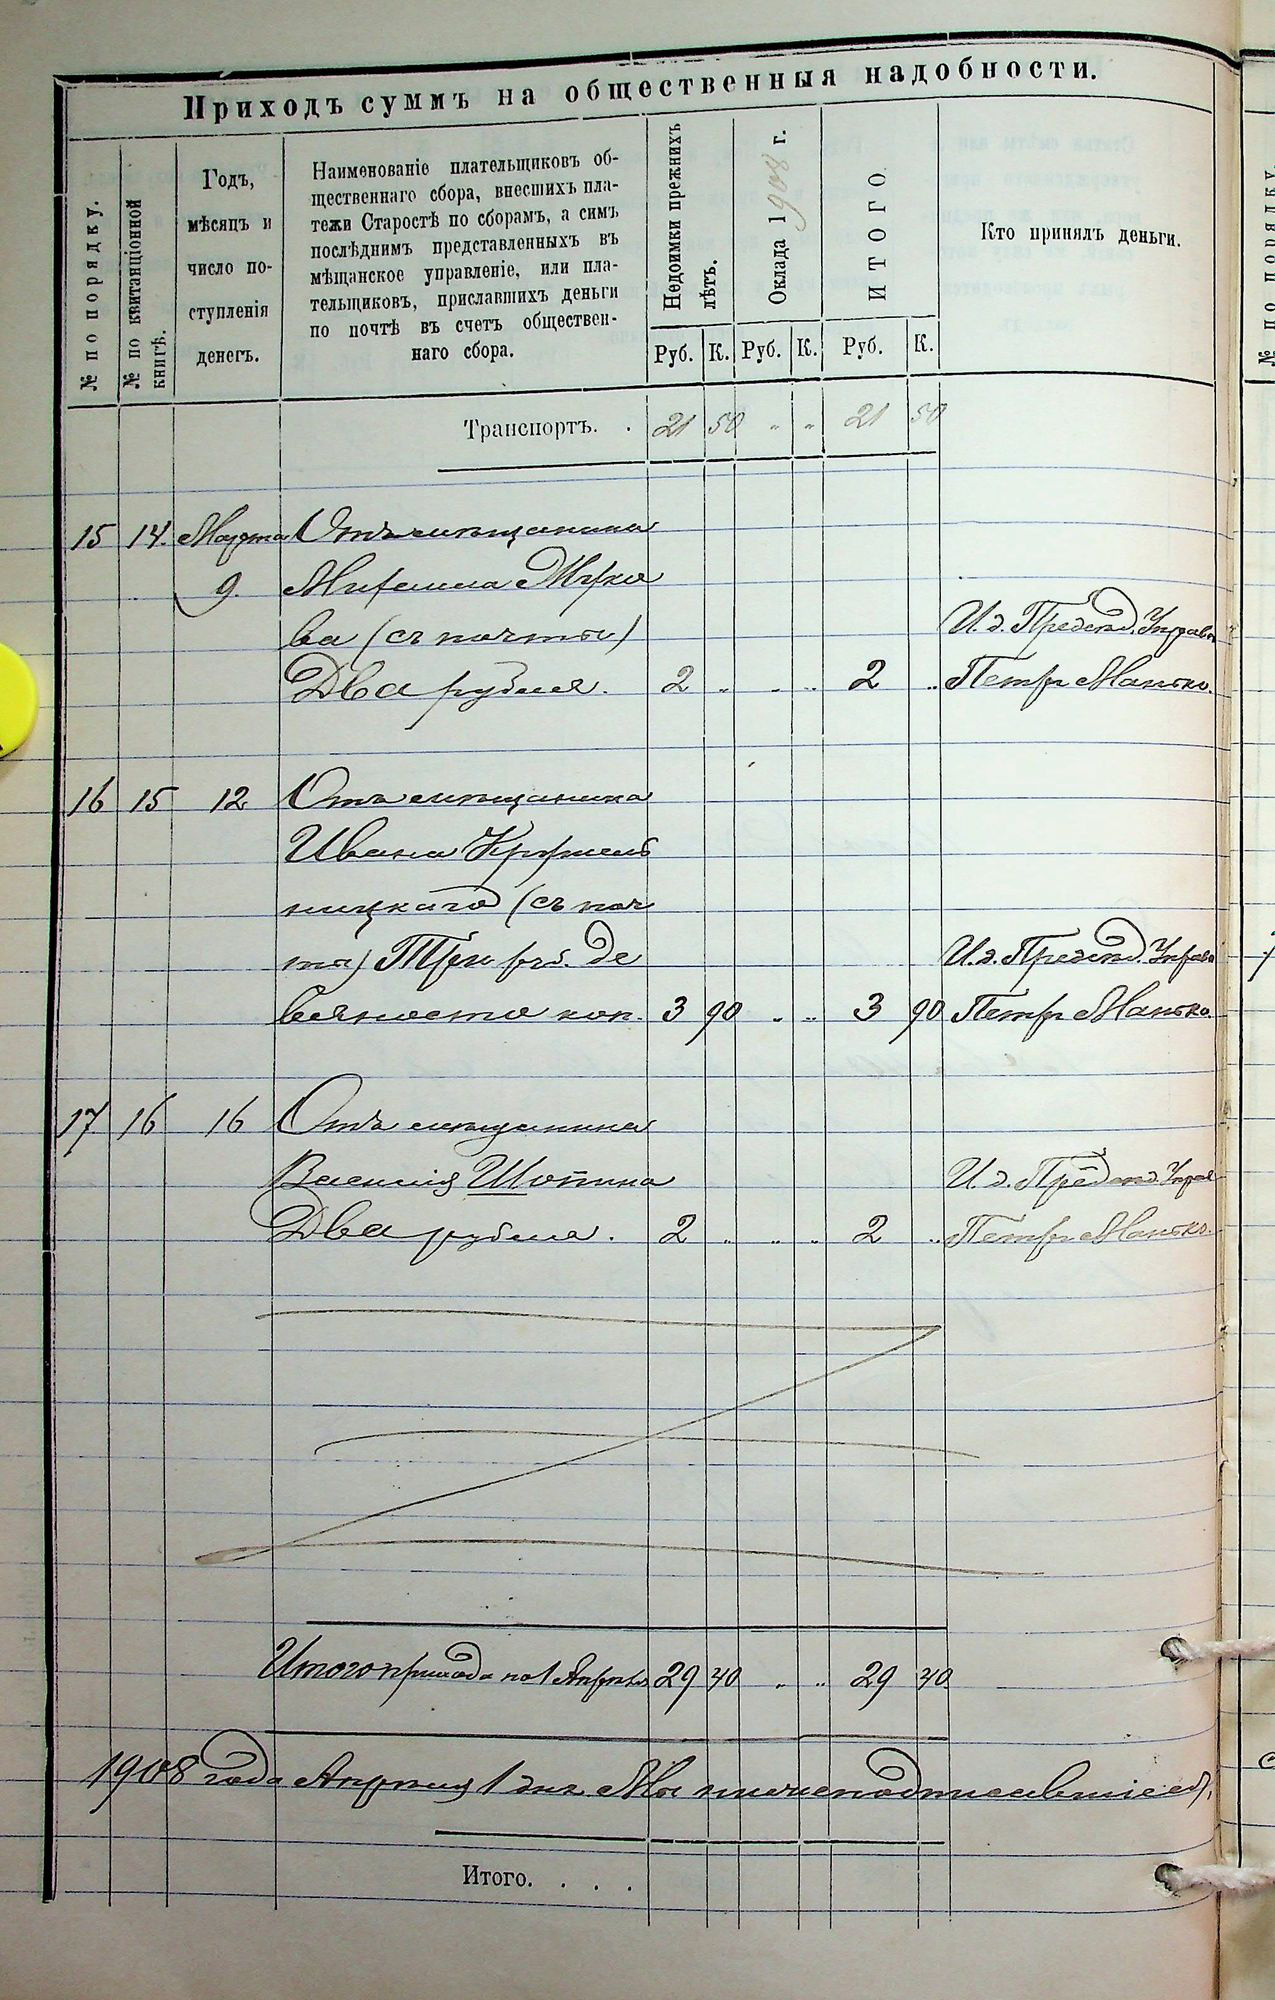 Приходъ суммъ на общественныя надобности.
№ по порядку.
№ по квитанціонной
книгѣ.
Годъ,
мѣсяцъ и
число по-
ступленія
денегъ.
Наименованіе плательщиковъ об-
щественнаго сбора, внесшихъ пла-
тежи Старостѣ по сборамъ, а симъ
послѣднимъ представленныхъ въ
мѣщанское управленіе, или пла-
тельщиковъ, приславшихъ деньги
по почтѣ въ счетъ обществен-
наго сбора.
Недоимки прежнихъ
лѣтъ.
Оклада 1908 г.
ИТОГО
Кто принялъ деньги.
Руб. К. Руб. К. Руб. К.
Транспортъ. . 21 50 „ „ 21 50
15 14. Марта Отъ мѣщанина
9. Михаила
ва (съ почты) И. д. Предсѣд. Управы
Два рубля. 2 „ „ „ 2 „ Петръ Манько.
16 15 12 Отъ мѣщанина
Ивана
ницкаго (съ поч
ты) Три руб. де И. д. Предсѣд. Управы
вяносто коп. 3 90 „ „ 3 90 Петръ Манько.
17 16 16 Отъ мѣщанина
Василія Шопина И. д. Предсѣд. Управы
Два рубля. 2 „ „ „ 2 „ Петръ Манько.
Итого прихода по 1 Апрѣля 29 40 „ „ 29 40
1908 года Апрѣля 1 дня Мы нижеподписавшіеся,
Итого. . . .